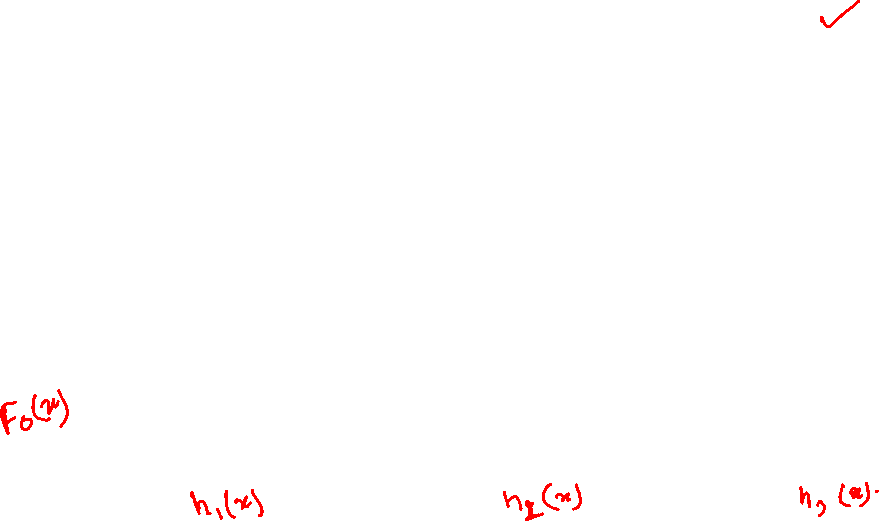 F₀(x)
h₁(x) h₂(x) h₃(x).